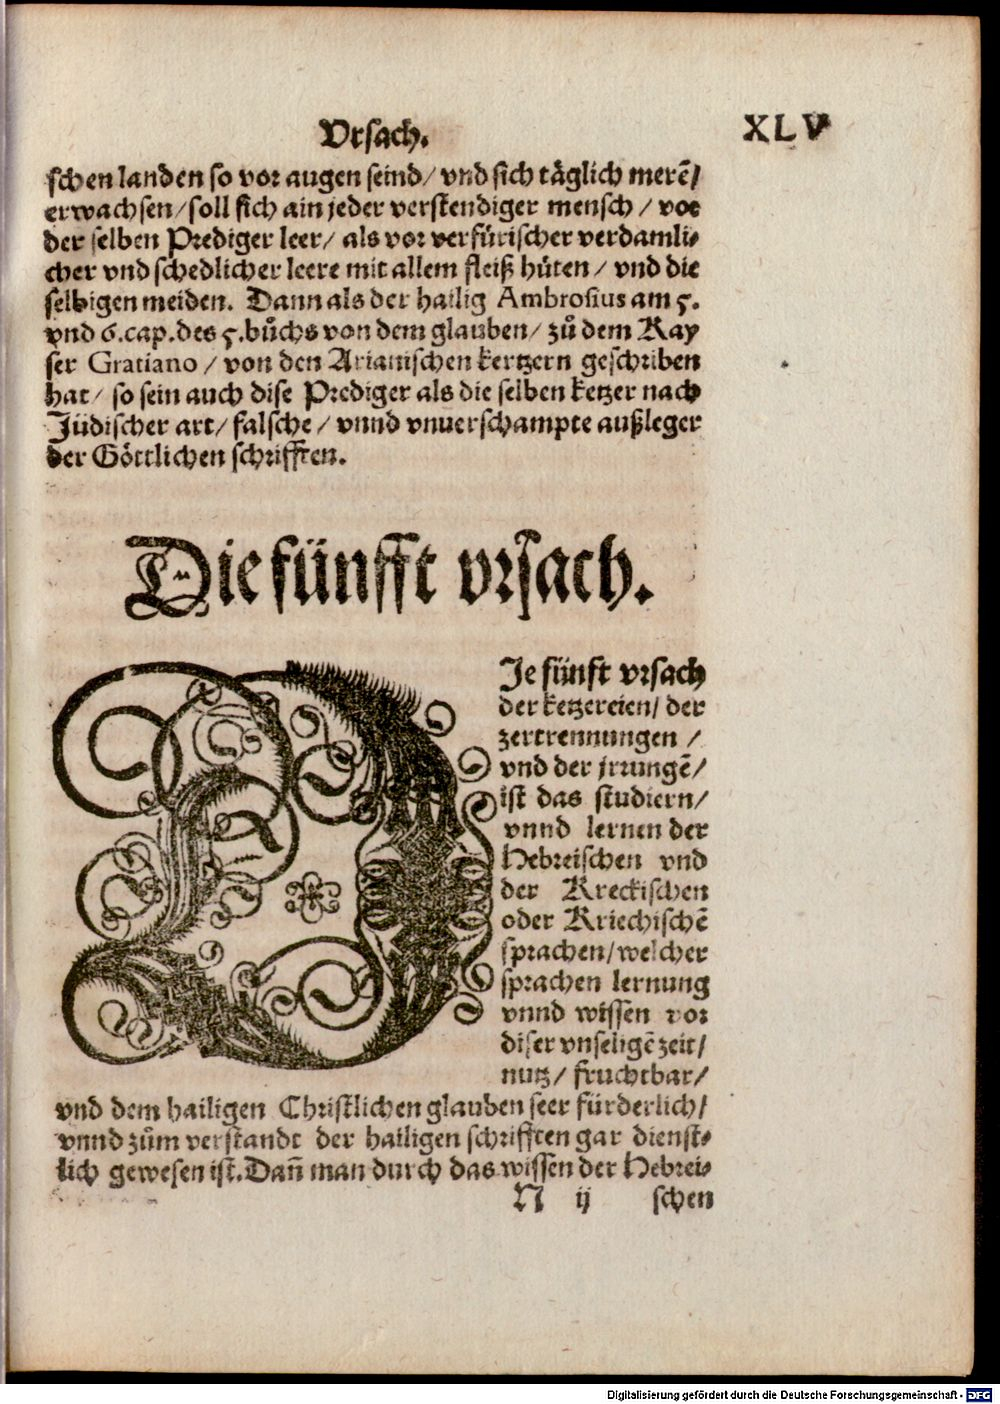 Vrsach.
XLV
schen landen so vor augen seind/ vnd sich täglich merẽ/
erwachsen/ soll sich ain jeder verstendiger mensch / vor
der selben Prediger leer/ als vor verfürischer verdamli⸗
cher vnd schedlicher leere mit allem fleiß hüten/ vnd die
selbigen meiden. Dann als der hailig Ambrosius am 5.
vnd 6.cap.des 5.bůchs von dem glauben/ zů dem Kay
ser Gratiano/ von den Arianischen kertzern geschriben
hat/ so sein auch dise Prediger als die selben ketzer nach
Jüdischer art/ falsche/ vnnd vnuerschampte außleger
der Göttlichen schrifften.
Die fünfft vrsach.
DJe fünft vrsach
der ketzereien/ der
zertrennungen /
vnd der jrrungẽ/
ist das studiern/
vnnd lernen der
Hebreischen vnd
der Kreckischen
oder Kriechischẽ
sprachen/ welcher
sprachen lernung
vnnd wissen vor
diser vnseligẽ zeit/
nutz/ fruchtbar/
vnd dem hailigen Christlichen glauben seer fürderlich/
vnnd zům verstandt der hailigen schrifften gar dienst⸗
lich gewesen ist. Dañ man durch das wissen der Hebrei⸗
N ij schen
Digitalisierung gefördert durch die Deutsche Forschungsgemeinschaft - DFG